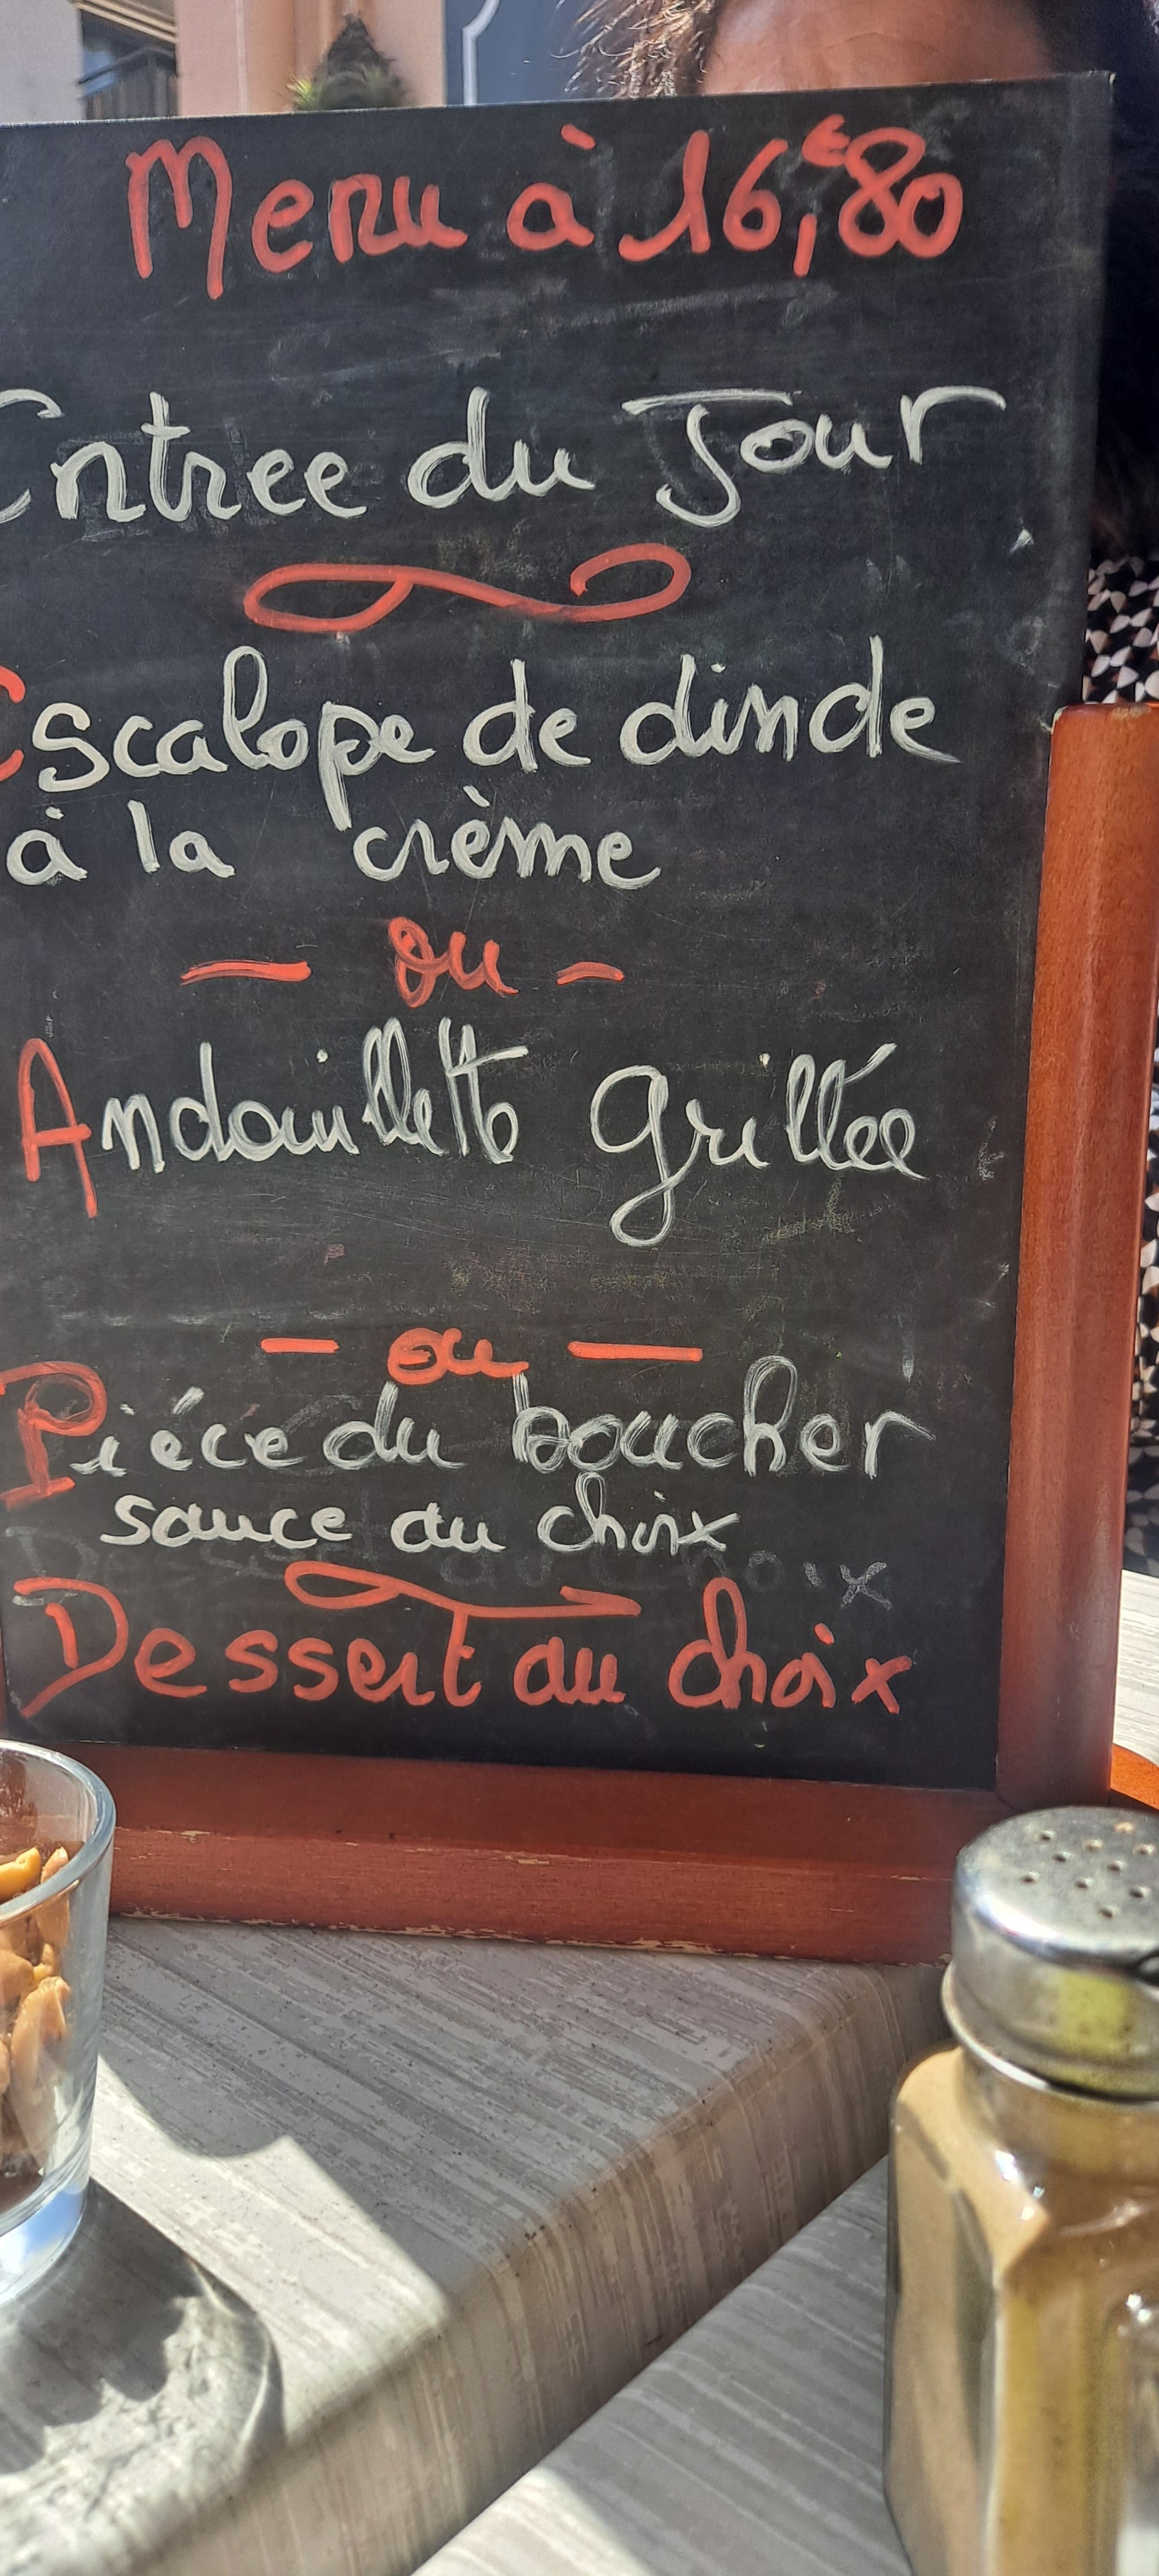 Menu à 16,€80
Entree du Jour
Escalope de dinde
à la crème
ou
Andouillette Grillée
ou
Piéce du boucher
sauce au choix
Dessert au choix